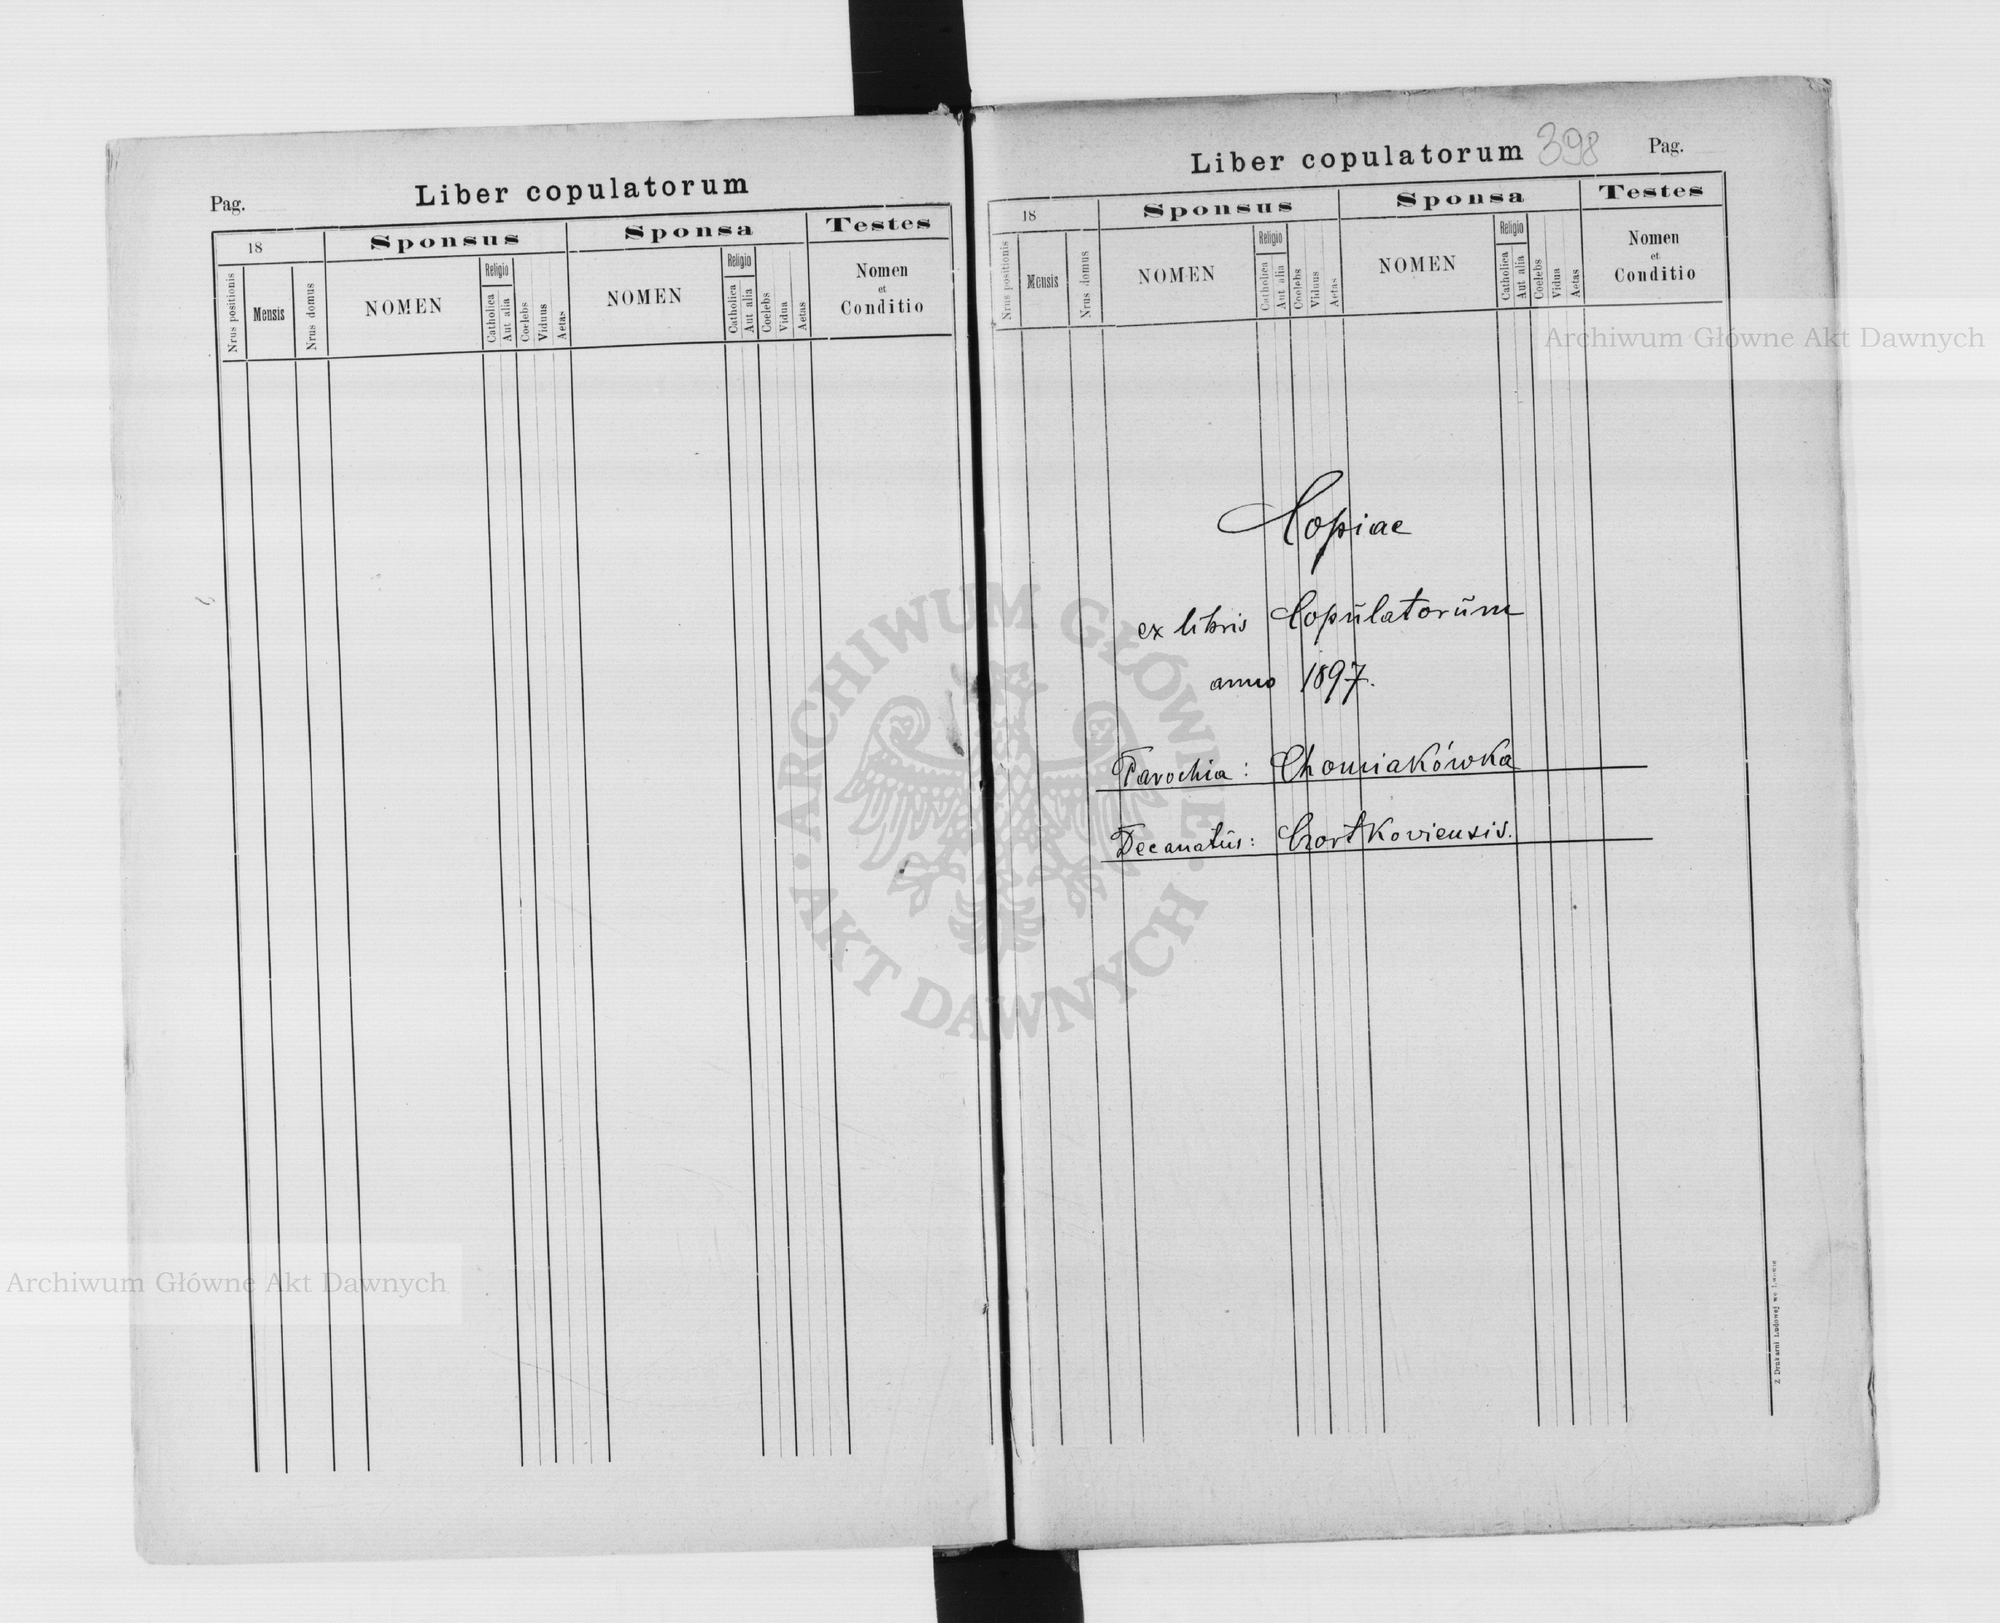 Pag.
Liber copulatorum
18
Sponsus
Sponsa
Testes
Nrus positionis
Mensis
Nrus domus
NOMEN
Religio
Catholica
Aut alia
Coelebs
Viduus
Aetas
NOMEN
Religio
Catholica
Aut alia
Coelebs
Vidua
Aetas
Nomen
et
Conditio
Liber copulatorum 398 Pag.
18
Sponsus
Sponsa
Testes
Nrus positionis
Mensis
Nrus domus
NOMEN
Religio
Catholica
Aut alia
Coelebs
Viduus
Aetas
NOMEN
Religio
Catholica
Aut alia
Coelebs
Vidua
Aetas
Nomen
et
Conditio
Copiae
ex libris Copŭlatorŭm
anno 1897.
Parochia: Chomiakówka
Decanatŭs: Czortkoviensis.
Z Drukarni Ludowej we Lwowie
Archiwum Główne Akt Dawnych
ARCHIWUM GŁÓWNE · AKT DAWNYCH ·
Archiwum Główne Akt Dawnych